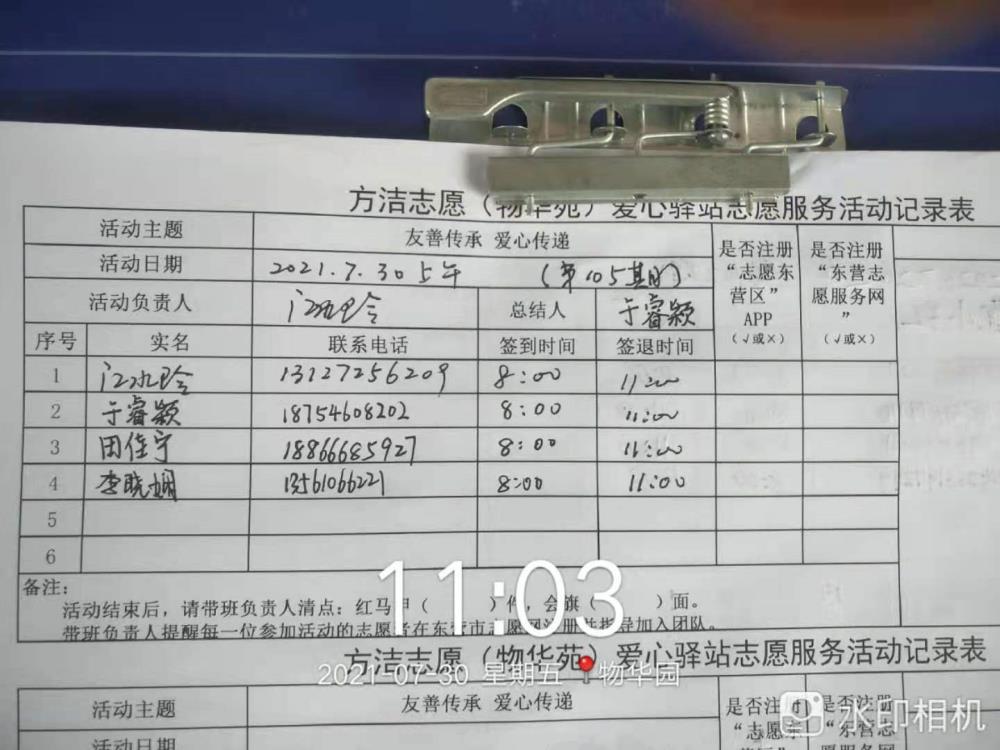 方洁志愿（物华苑）爱心驿站志愿服务活动记录表
活动主题 友善传承 爱心传递 是否注册“志愿东营区”APP（√或×） 是否注册“东营志愿服务网”（√或×）
活动日期 2021.7.30上午 （第105期）
活动负责人 总结人 于睿颖
序号 实名 联系电话 签到时间 签退时间
1 13127256209 8:00 11:00
2 于睿颖 18754608202 8:00 11:00
3 田佳宁 18866685927 8:00 11:00
4 李晓娴 13561066221 8:00 11:00
5
6
备注：
活动结束后，请带班负责人清点：红马甲（ ）件，会旗（ ）面。
带班负责人提醒每一位参加活动的志愿者在东营市志愿网注册并指导加入团队。
11:03
方洁志愿（物华苑）爱心驿站志愿服务活动记录表
2021-07-30 星期五 物华园
活动主题 友善传承 爱心传递 是否注册“志愿东 是否注册“东营志
活动日期
水印相机